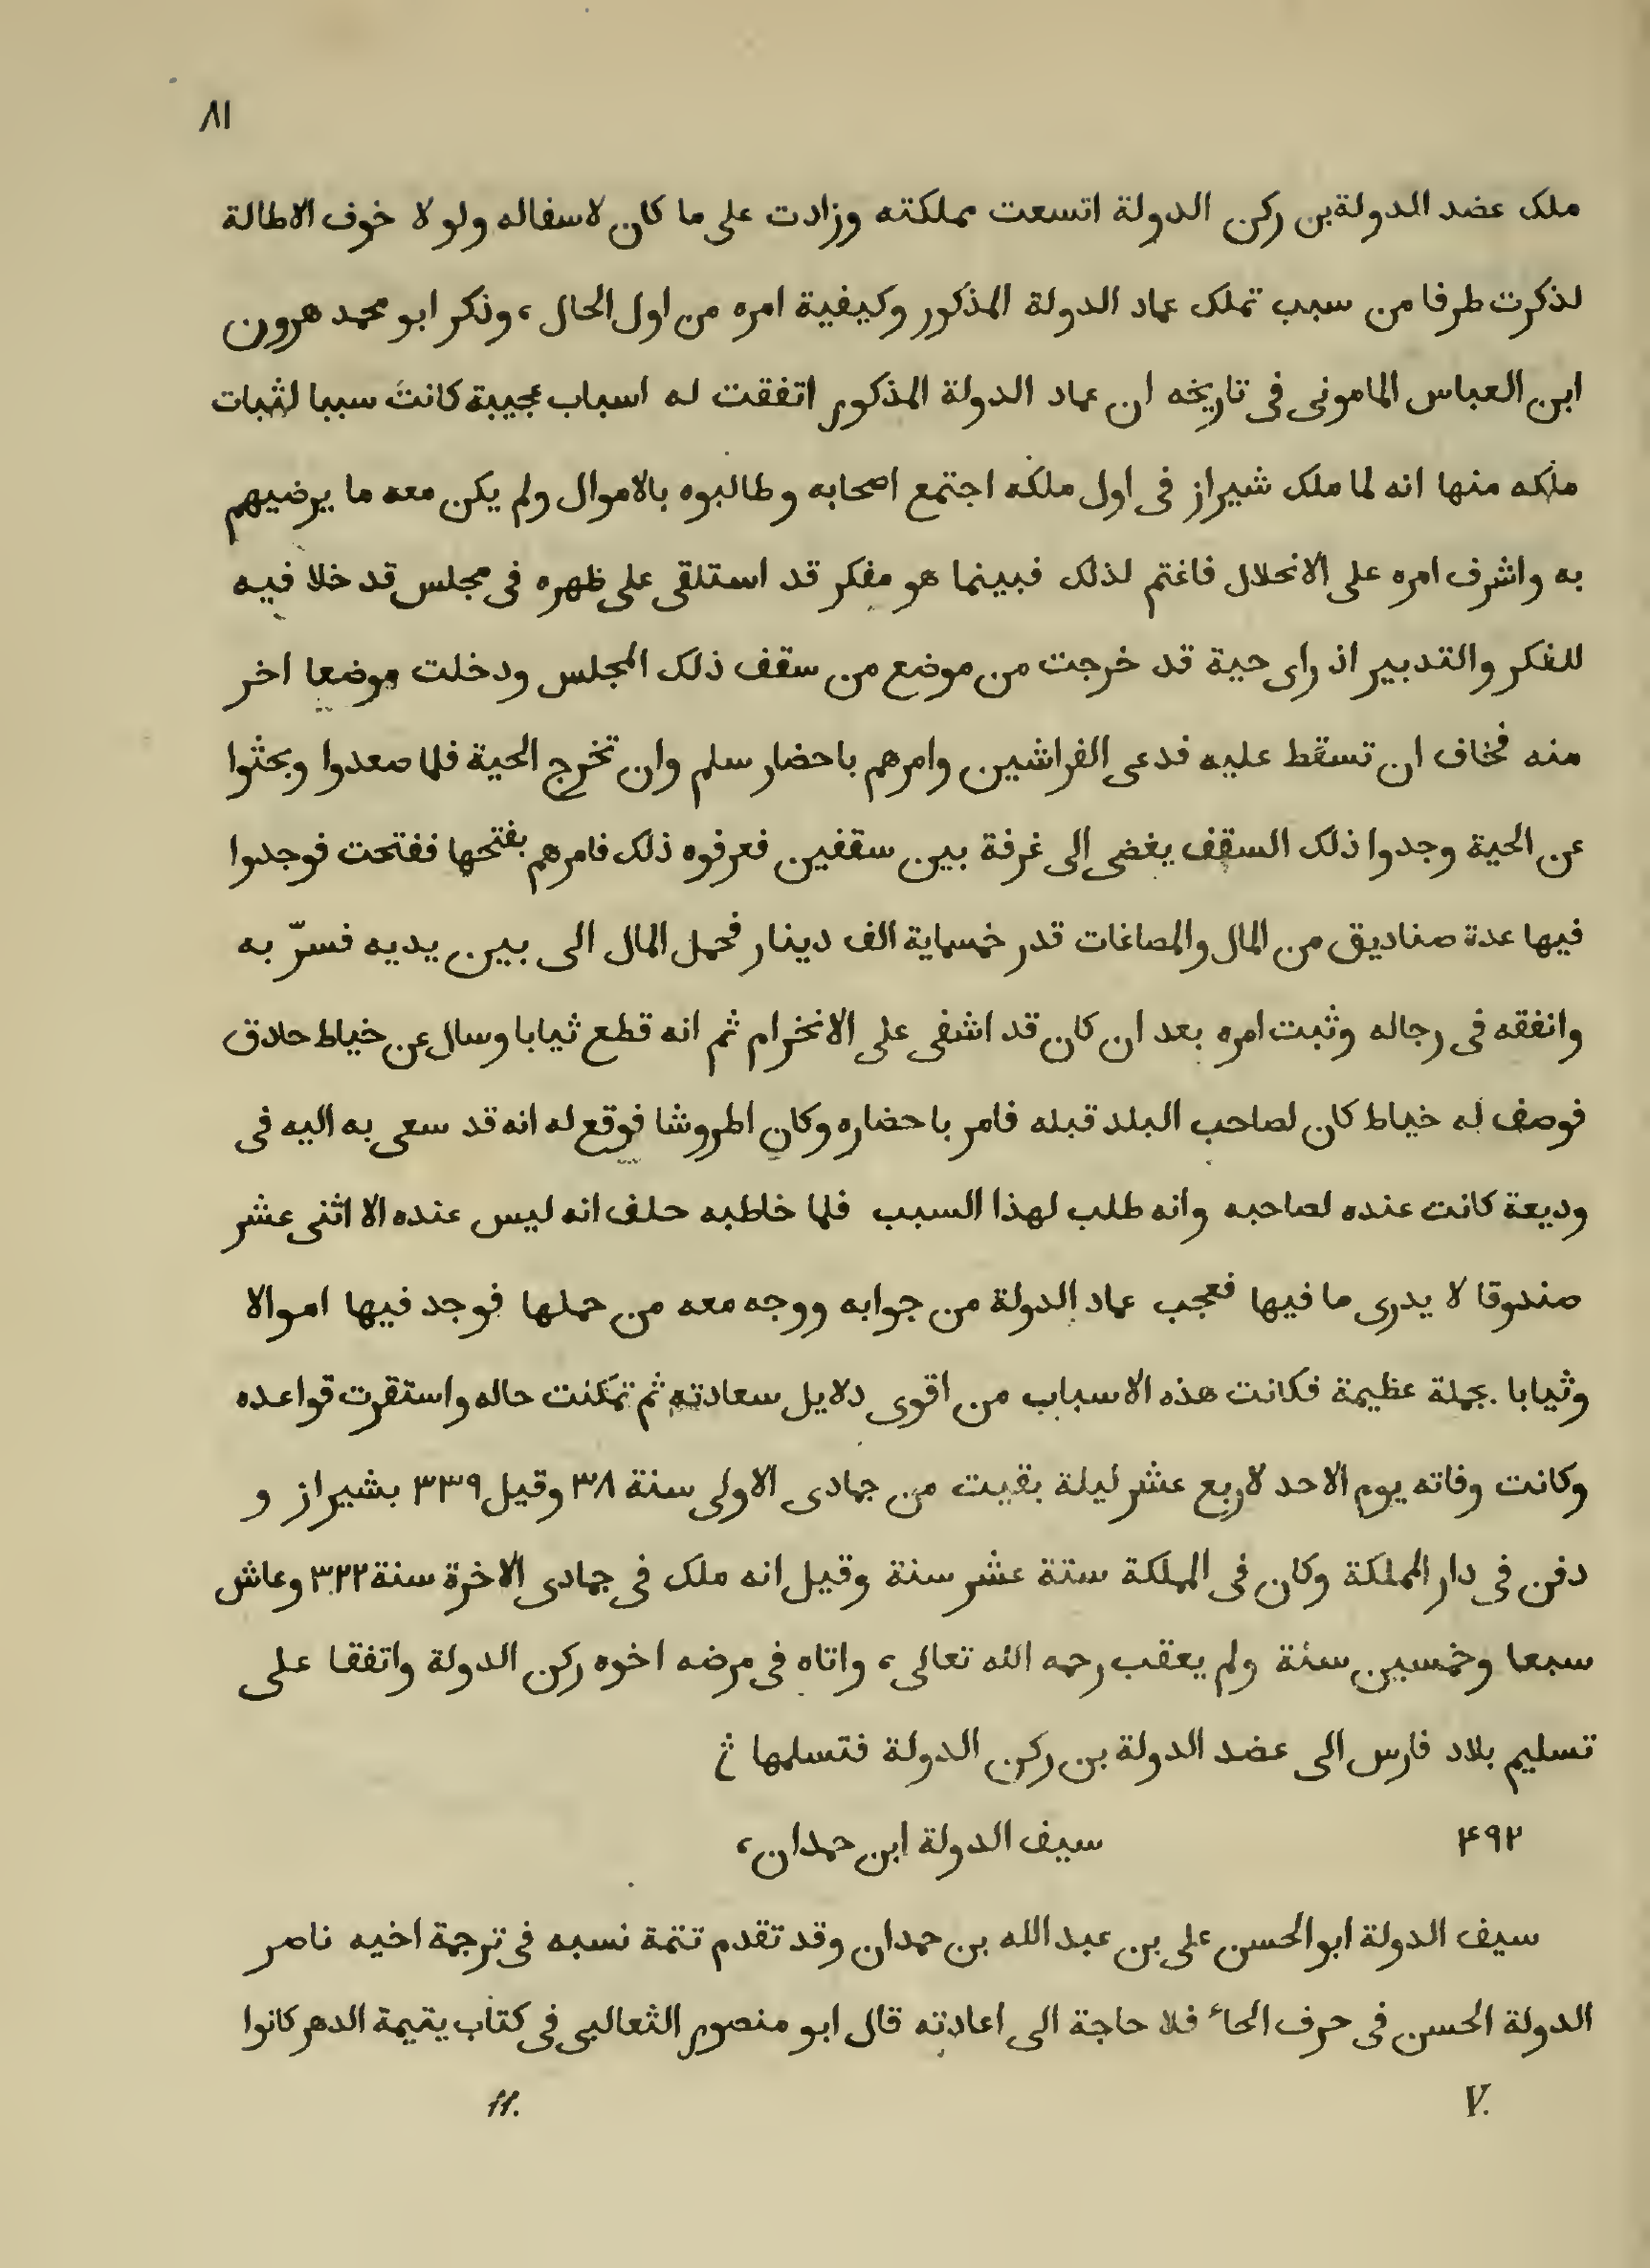 ٨١
ملك عضد الدولة بن ركن الدولة اتسعت مملكته وزادت على ما كان لاسفاله ولو لا خوف الاطالة
لذكرت طرفا من سبب تملك عماد الدولة المذكور وكيفية امره من اول الحال، وذكر ابو محمد هرون
ابن العباس المامونى فى تاريخه ان عماد الدولة المذكور اتفقت له اسباب عجيبة كانت سببا لثبات
ملكه منها انه لما ملك شيراز فى اول ملكه اجتمع اصحابه وطالبوه بالاموال ولم يكن معه ما يرضيهم
به واشرف امره على الانحلال فاغتم لذلك فبينما هو مفكر قد استلقى على ظهره فى مجلس قد خلا فيه
للفكر والتدبير اذ راى حية قد خرجت من موضع من سقف ذلك المجلس ودخلت موضعا اخر
منه فخاف ان تسقط عليه فدعى الفراشين وامرهم باحضار سلم وان تخرج الحية فلما صعدوا وبحثوا
عن الحية وجدوا ذلك السقف يغضى الى غرفة بين سقفين فعرفوه ذلك فامرهم بفتحها ففتحت فوجدوا
فيها عدة صناديق من المال والمصاغات قدر خمسماية الف دينار فحمل المال الى بين يديه فسرّ به
وانفقه فى رجاله وثبت امره بعد ان كان قد اشفى على الانخرام ثم انه قطع ثيابا وسال عن خياط حلاق
فوصف له خياط كان لصاحب البلد قبله فامر باحضاره وكان اطروشا فوقع له انه قد سعى به اليه فى
وديعة كانت عنده لصاحبه وانه طلب لهذا السبب فلما خاطبه حلف انه ليس عنده الا اثنى عشر
صندوقا لا يدرى ما فيها فعجب عماد الدولة من جوابه ووجه معه من حملها فوجد فيها اموالا
وثيابا بجملة عظيمة فكانت هذه الاسباب من اقوى دلايل سعادته ثم تمكنت حاله واستقرت قواعده
وكانت وفاته يوم الاحد لاربع عشر ليلة بقيت من جمادى الاولى سنة ٣٨ وقيل ٣٣٩ بشيراز و
دفن فى دار المملكة وكان فى المملكة ستة عشر سنة وقيل انه ملك فى جمادى الاخرة سنة ٣٢٢ وعاش
سبعا وخمسين سنة ولم يعقب رحمه الله تعالى، واتاه فى مرضه اخوه ركن الدولة واتفقا على
تسليم بلاد فارس الى عضد الدولة بن ركن الدولة فتسلمها
۴٩٢ سيف الدولة ابن حمدان،
سيف الدولة ابو الحسن على بن عبد الله بن حمدان وقد تقدم تتمة نسبه فى ترجمة اخيه ناصر
الدولة الحسن فى حرف الحاء فلا حاجة الى اعادته قال ابو منصور الثعالبى فى كتاب يتيمة الدهر كانوا
V. 11.